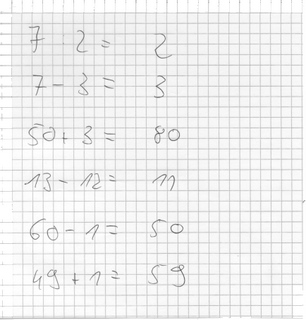 7 2 = 2
7 - 3 = 3
50 + 3 = 80
13 - 12 = 11
60 - 1 = 50
49 + 1 = 59